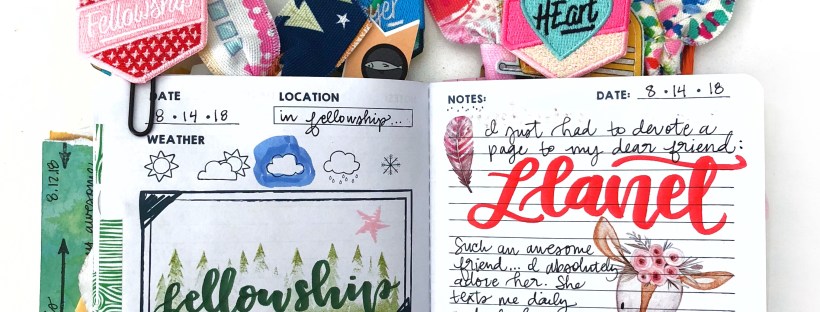 Fellowship
HEart
DATE
8 • 14 • 18
LOCATION
in fellowship...
WEATHER
fellowship
8.12.18
awesome
NOTES:
DATE: 8 • 14 • 18
I just had to devote a
page to my dear friend:
Llanel
Such an awesome
friend... I absolutely
adore her. She
texts me daily